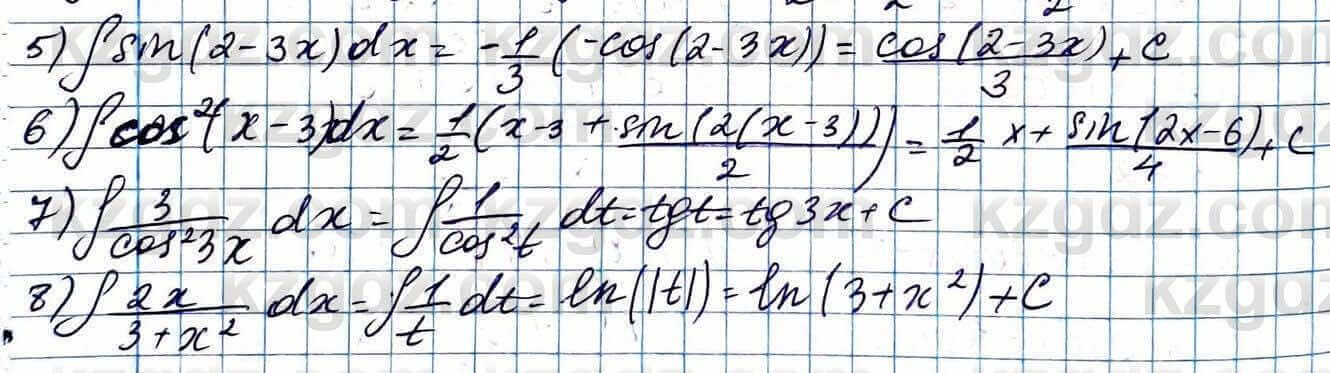 5) ∫ sin(2-3x)dx = -1/3 (-cos(2-3x)) = cos(2-3x)/3 + C
6) ∫ cos²(x-3)dx = 1/2 (x-3 + sin(2(x-3))/2) = 1/2 x + sin(2x-6)/4 + C
7) ∫ 3/cos²3x dx = ∫ 1/cos²t dt = tg t = tg 3x + C
8) ∫ 2x/(3+x²) dx = ∫ 1/t dt = ln(|t|) = ln(3+x²) + C